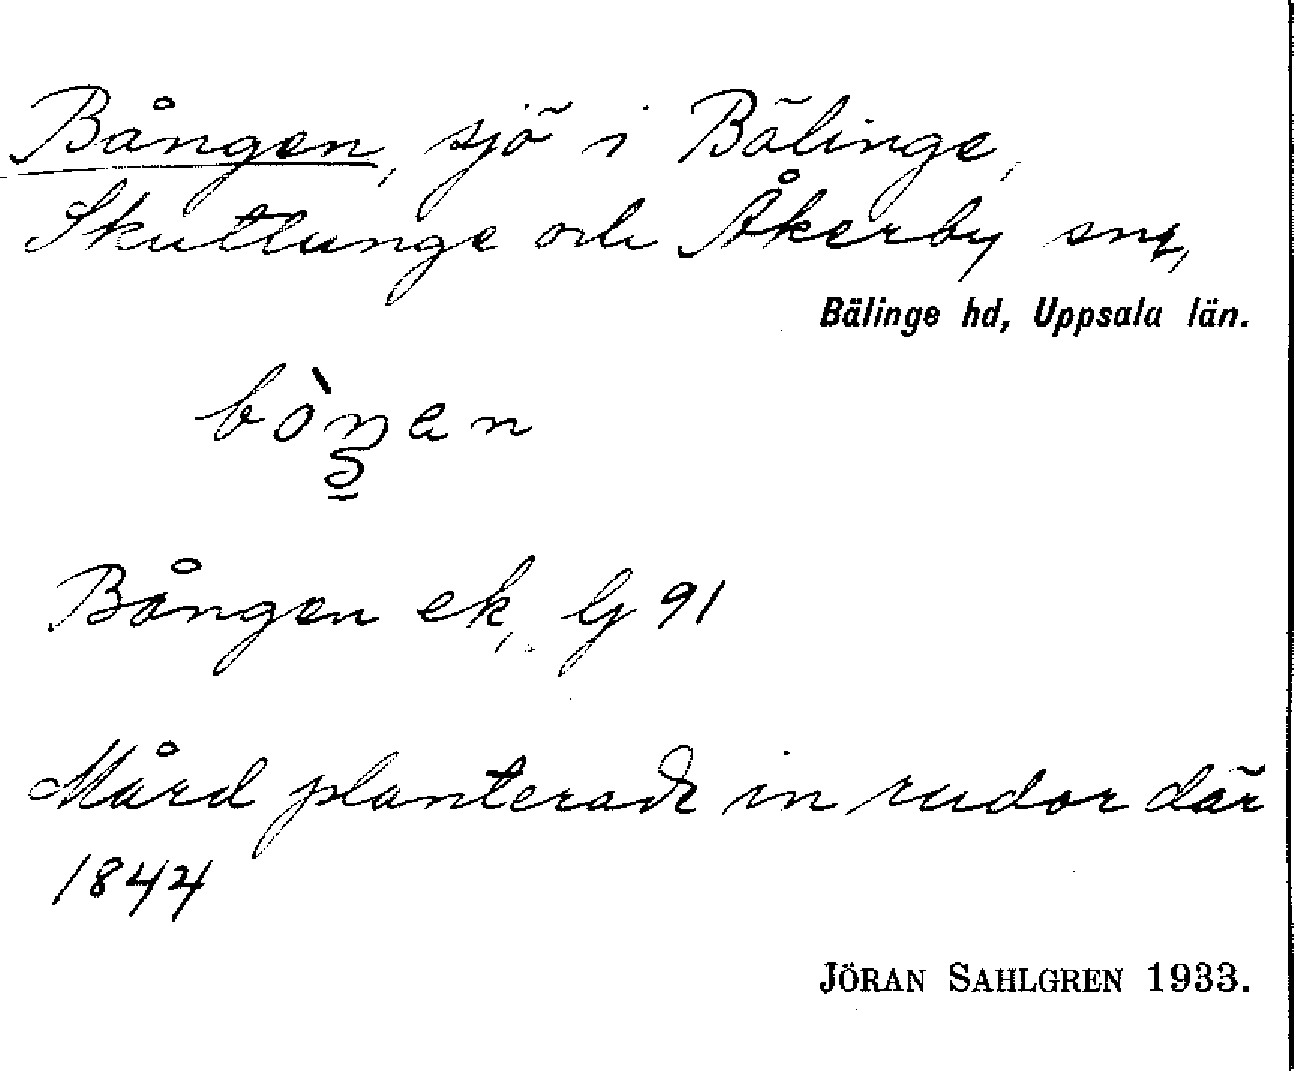 Bången, sjö i Bälinge,
Skuttunge och Åkerby snr,
Bälinge hd, Uppsala län.
Bången ek, G 91
Mård planterade in rudor där
1844
JÖRAN SAHLGREN 1933.